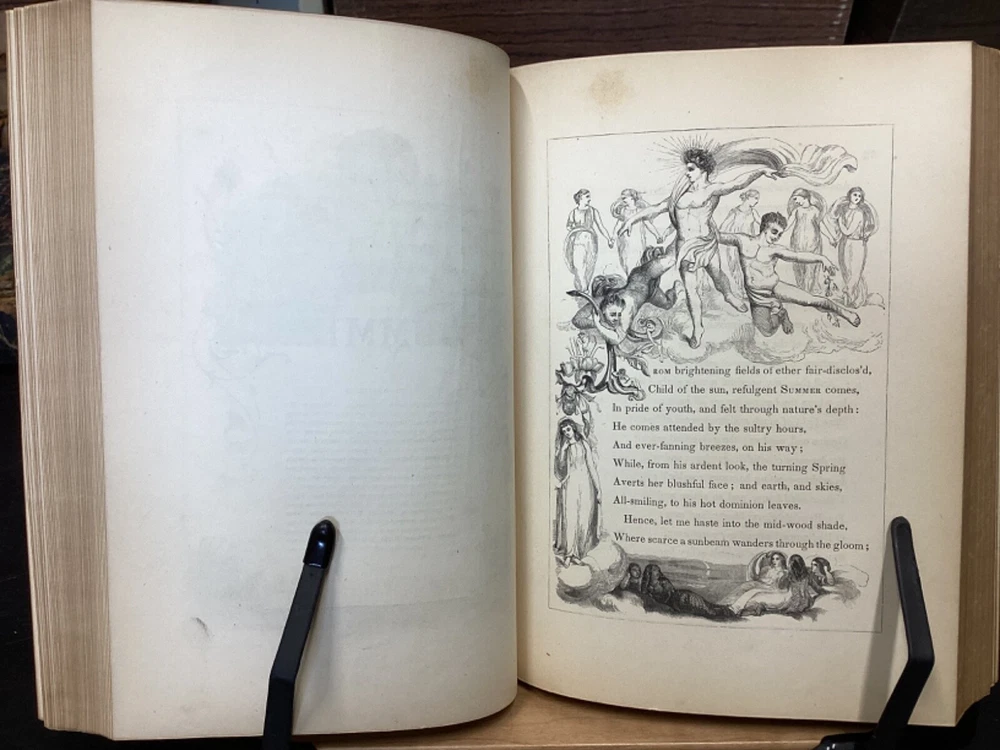 FROM brightening fields of ether fair-disclos'd,
Child of the sun, refulgent SUMMER comes,
In pride of youth, and felt through nature's depth:
He comes attended by the sultry hours,
And ever-fanning breezes, on his way;
While, from his ardent look, the turning Spring
Averts her blushful face; and earth, and skies,
All-smiling, to his hot dominion leaves.
Hence, let me haste into the mid-wood shade,
Where scarce a sunbeam wanders through the gloom;